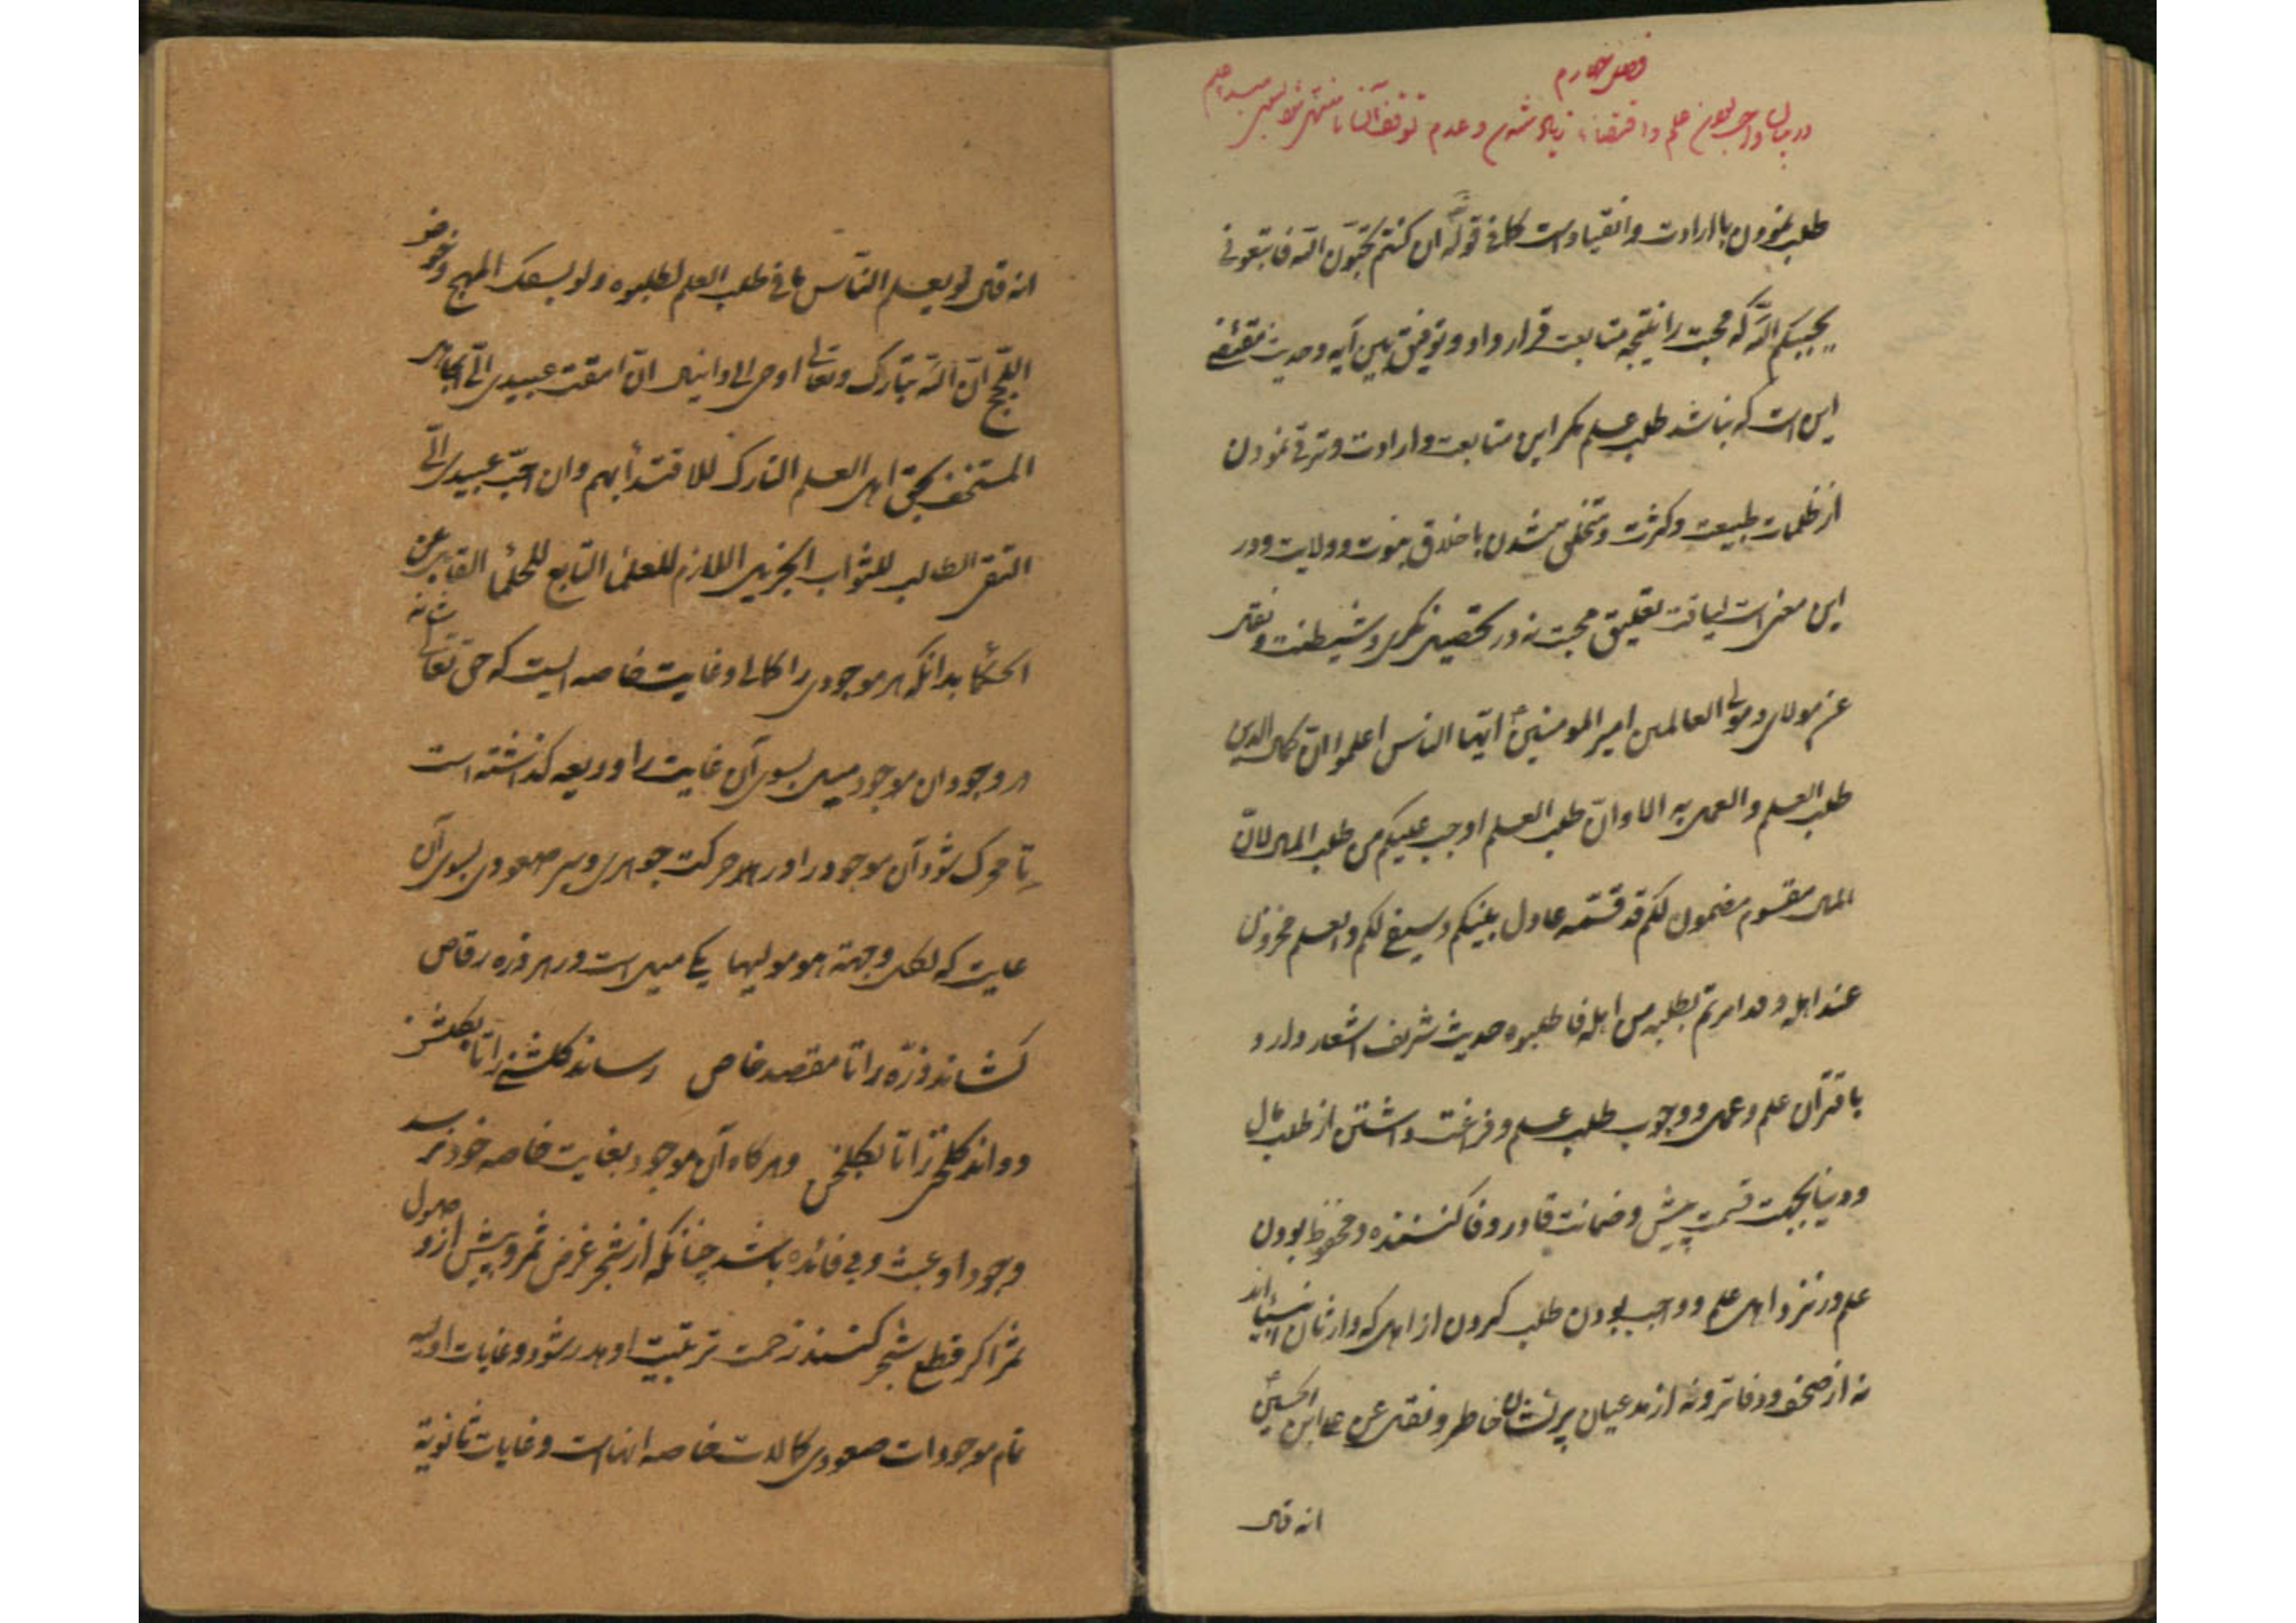 فصل چهارم
در بیان واجب بودن علم و اقتضاء زیاد شدن و عدم توقف آن تا منتهی شود
طلب نمودن با ارادت و انقیاد است کما فی قوله تع ان کنتم تحبّون اللّه فاتبعونی
یحببکم اللّه که محبت را نتیجه متابعت قرار داد و توفیق بین آیه و حدیث مقتضی
این است که نباشد طلب علم مگر این متابعت و ارادت و ترقی نمودن
از ظلمات طبیعت و کثرت و متخلق شدن باخلاق نبوت و ولایت و در
این معنی است لیاقت تعلیق محبت نه در تحصیل نکری و شیطنت و نقل
عن مولای و مولی العالمین امیر المومنینؑ ایّها الناس اعلموا انّ کمال الدین
طلب العلم و العمل به الا و انّ طلب العلم اوجب علیکم من طلب المال لانّ
المال مقسوم مضمون لکم قد قسّمه عادل بینکم و سیفی لکم و العلم مخزون
عند اهله و قد امرتم بطلبه من اهله فاطلبوه حدیث شریف اشعار دارد
باقتران علم و عمل و وجوب طلب علم و فراغت داشتن از طلب مال
و دنیا بجهت قسمت پیش و ضمانت قادر وفا کننده و محفوظ بودن
علم در نزد اهل علم و واجب بودن طلب کردن از اهل که وارثان انبیااند
نه از صحف و دفاتر و نه از مدعیان پریشان خاطر و نقل عن علی ابن الحسینؑ
انه قال
انه قال لو یعلم النّاس ما فی طلب العلم لطلبوه و لو بسفک المهج و خوض
اللّجج انّ اللّه تبارک و تعالی اوحی الی دانیال انّ امقت عبیدی الیّ الجاهل
المستخف بحق اهل العلم التارک للاقتداء بهم و ان احبّ عبیدی الیّ
التقی الطالب للثواب الجزیل اللازم للعلماء التابع للحلماء القابل عن
الحکماء بدانکه هر موجودی را کمالی و غایت خاصه ایست که حق تعالی شانه
در وجود آن موجود میل بسوی آن غایت را ودیعه گذاشته است
تا محرک شود آن موجود را در هر حرکت جوهری و سیر صعودی بسوی آن
غایت که لکل وجهة هو مولیها یکی میل است در هر ذره رقاص
کشاند ذرّه را تا مقصد خاص رساند گلشنی را تا بگلشن
دواند گلخنی را تا بگلخن و هر گاه آن موجود بغایت خاصه خود نرسد
وجود او عبث و بی فائده باشد چنانکه از شجر غرض ثمر و پیش از وصول
ثمر اگر قطع شجر کنند زحمت تربیت او هدر شود و غایات اولیه
تمام موجودات صعودی کمالات خاصه انهاست و غایات ثانویة